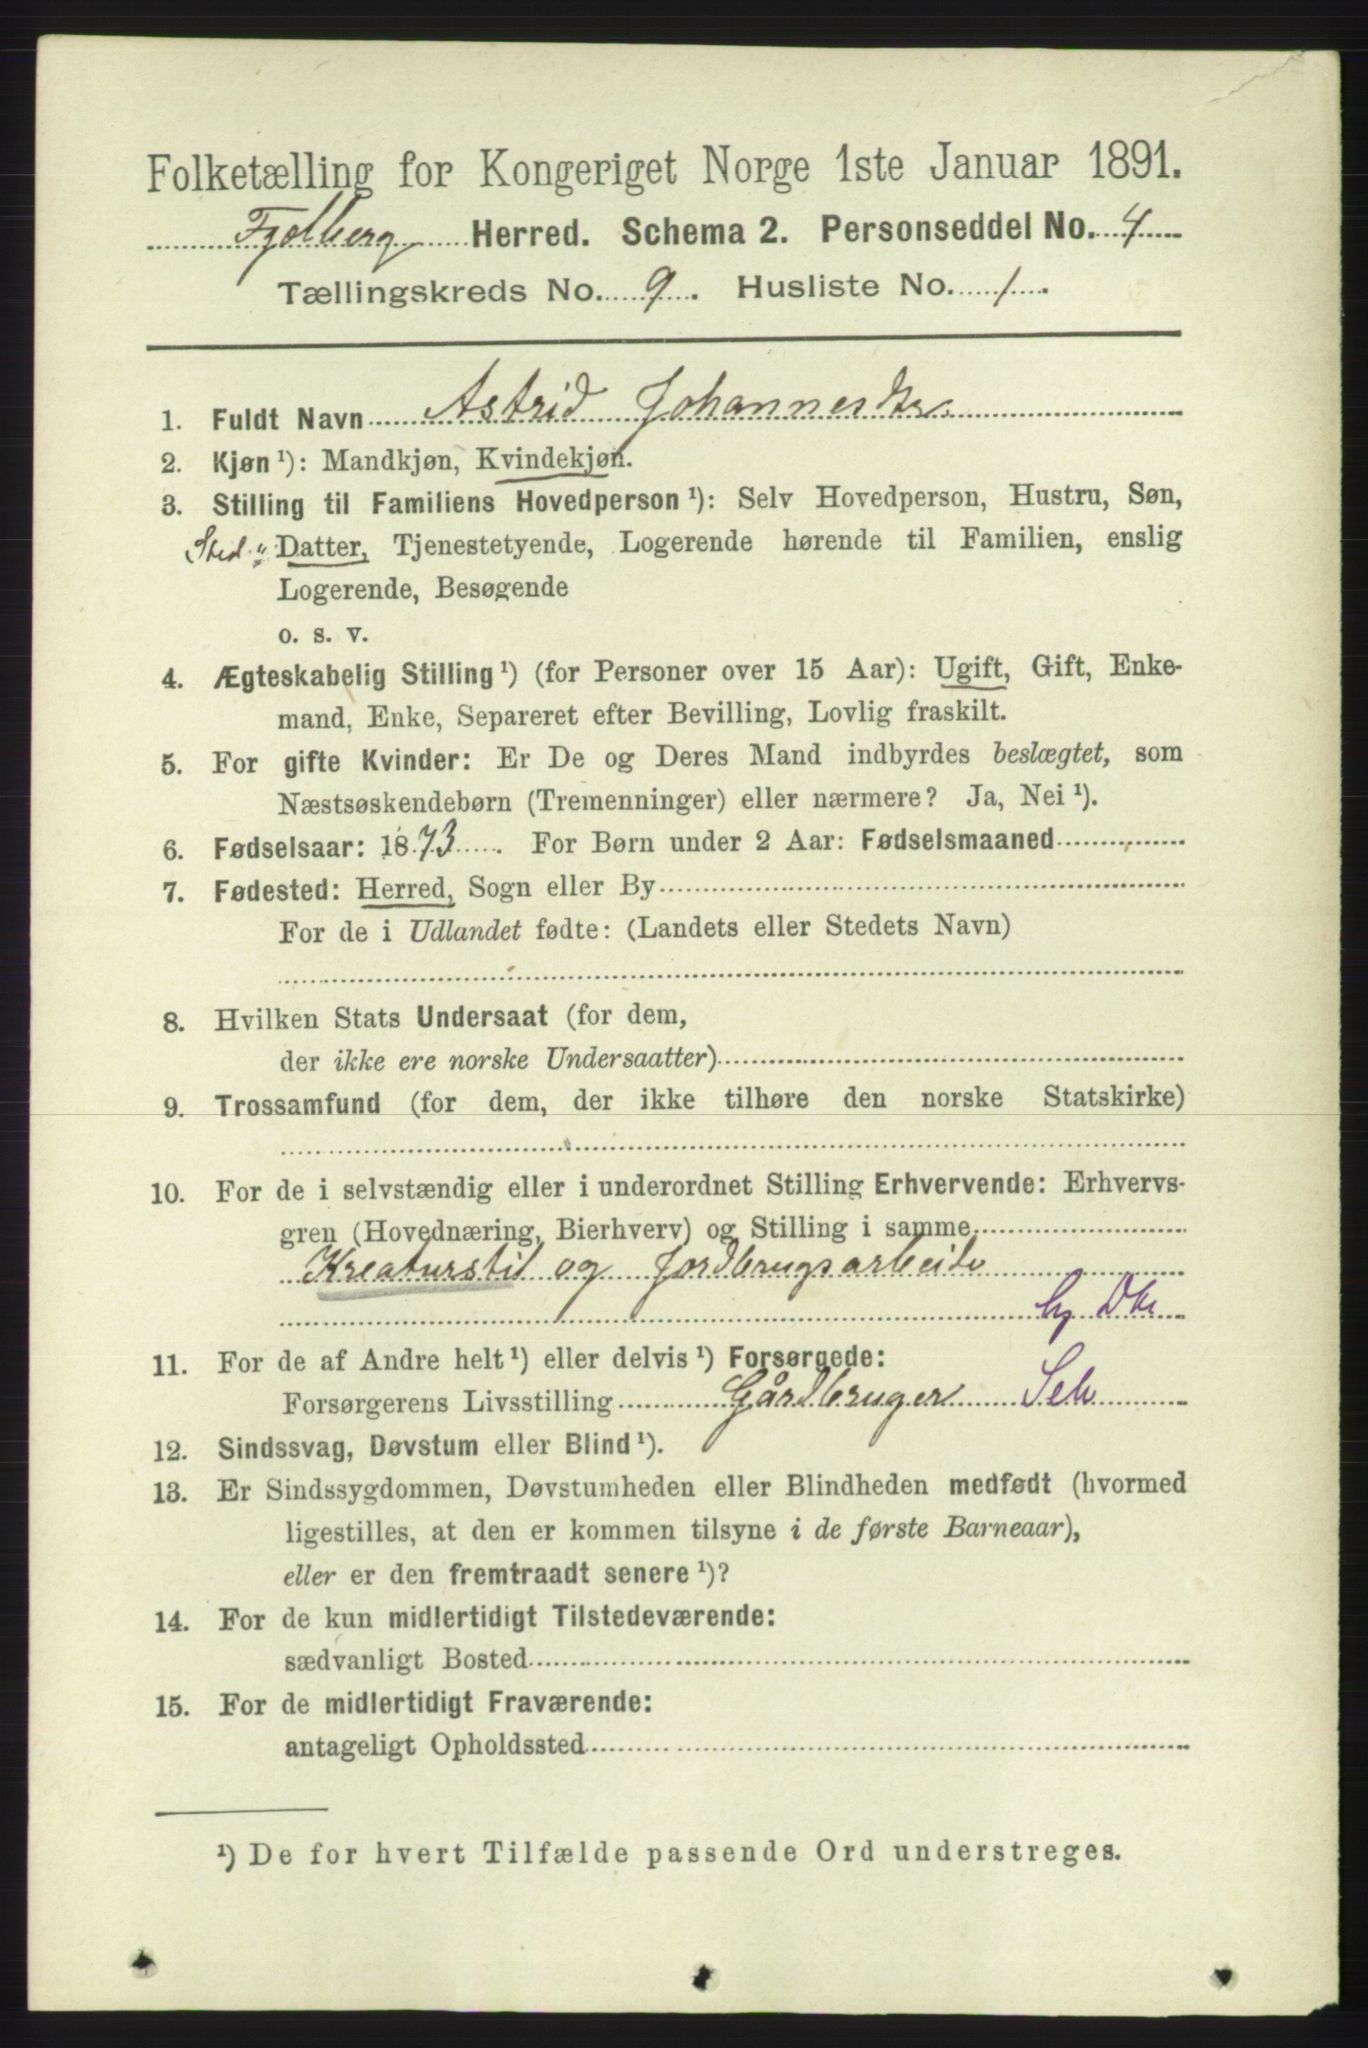 Folketælling for Kongeriget Norge 1ste Januar 1891.
Fjelberg Herred. Schema 2. Personseddel No. 4
Tællingskreds No. 9. Husliste No. 1.
1. Fuldt Navn Astrid Johannesdtr.
2. Kjøn ¹): Mandkjøn, Kvindekjøn.
3. Stilling til Familiens Hovedperson ¹): Selv Hovedperson, Hustru, Søn,
Sted „ Datter, Tjenestetyende, Logerende hørende til Familien, enslig
Logerende, Besøgende
o. s. v.
4. Ægteskabelig Stilling ¹) (for Personer over 15 Aar): Ugift, Gift, Enke-
mand, Enke, Separeret efter Bevilling, Lovlig fraskilt.
5. For gifte Kvinder: Er De og Deres Mand indbyrdes beslægtet, som
Næstsøskendebørn (Tremenninger) eller nærmere? Ja, Nei ¹).
6. Fødselsaar: 1873. For Børn under 2 Aar: Fødselsmaaned
7. Fødested: Herred, Sogn eller By
For de i Udlandet fødte: (Landets eller Stedets Navn)
8. Hvilken Stats Undersaat (for dem,
der ikke ere norske Undersaatter)
9. Trossamfund (for dem, der ikke tilhøre den norske Statskirke)
10. For de i selvstændig eller i underordnet Stilling Erhvervende: Erhvervs-
gren (Hovednæring, Bierhverv) og Stilling i samme
Kreaturstil og Jordbrugsarbeide
11. For de af Andre helt ¹) eller delvis ¹) Forsørgede:
Forsørgerens Livsstilling Gårdbruger Selv
12. Sindssvag, Døvstum eller Blind ¹).
13. Er Sindssygdommen, Døvstumheden eller Blindheden medfødt (hvormed
ligestilles, at den er kommen tilsyne i de første Barneaar),
eller er den fremtraadt senere ¹)?
14. For de kun midlertidigt Tilstedeværende:
sædvanligt Bosted
15. For de midlertidigt Fraværende:
antageligt Opholdssted
¹) De for hvert Tilfælde passende Ord understreges.